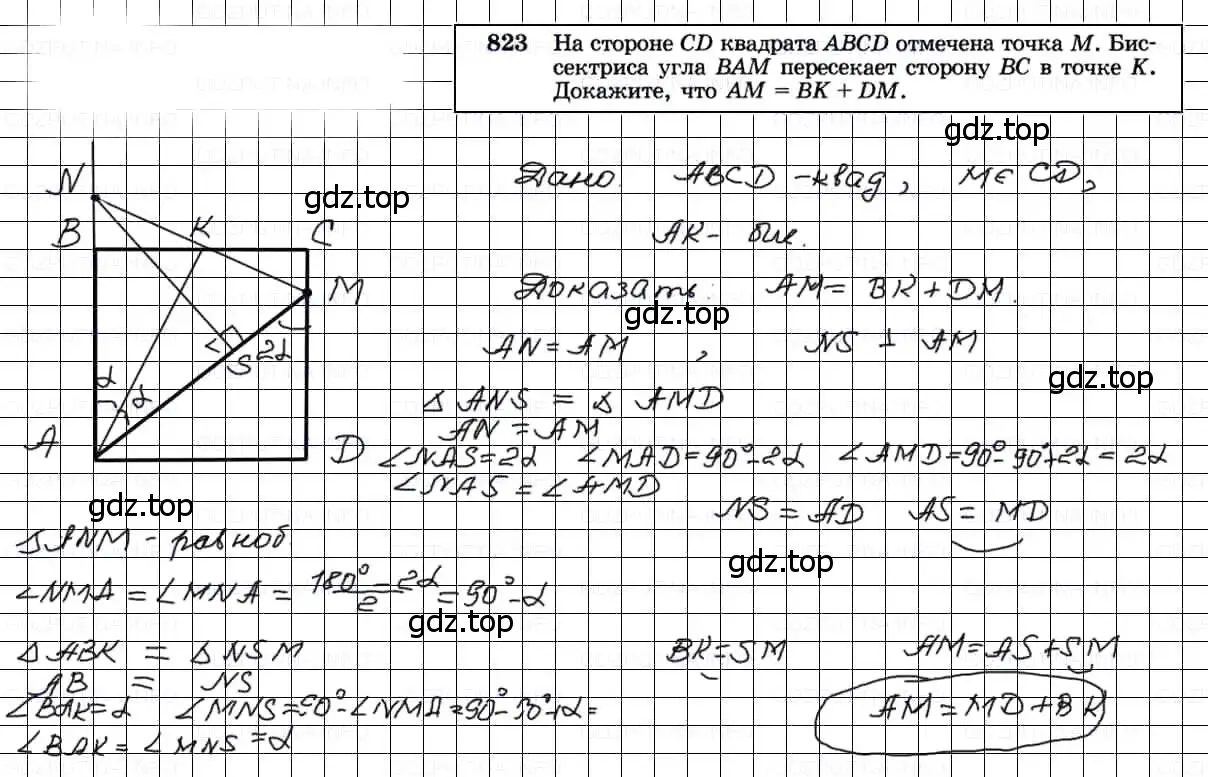 823 На стороне CD квадрата ABCD отмечена точка M. Бис-
сектриса угла BAM пересекает сторону BC в точке K.
Докажите, что AM = BK + DM.
gdz.top
Дано. ABCD - квад, M ∈ CD,
gdz.top
N
B K C
AK - бис.
M
Доказать: AM = BK + DM.
gdz.top
AN = AM , NS ⊥ AM
S 2α
gdz.top
α α
Δ ANS = Δ AMD
A D
AN = AM
∠NAS = 2α ∠MAD = 90° - 2α ∠AMD = 90° - 90° + 2α = 2α
∠NAS = ∠AMD
gdz.top
NS = AD AS = MD
Δ ANM - равноб.
gdz.top
∠NMA = ∠MNA = 180° - 2α / 2 = 90° - α
gdz.top
Δ ABK = Δ NSM BK = SM AM = AS + SM
AB = NS
∠BAK = α ∠MNS = 90° - ∠NMA = 90° - 90° + α =
AM = MD + BK
∠BAK = ∠MNS = α